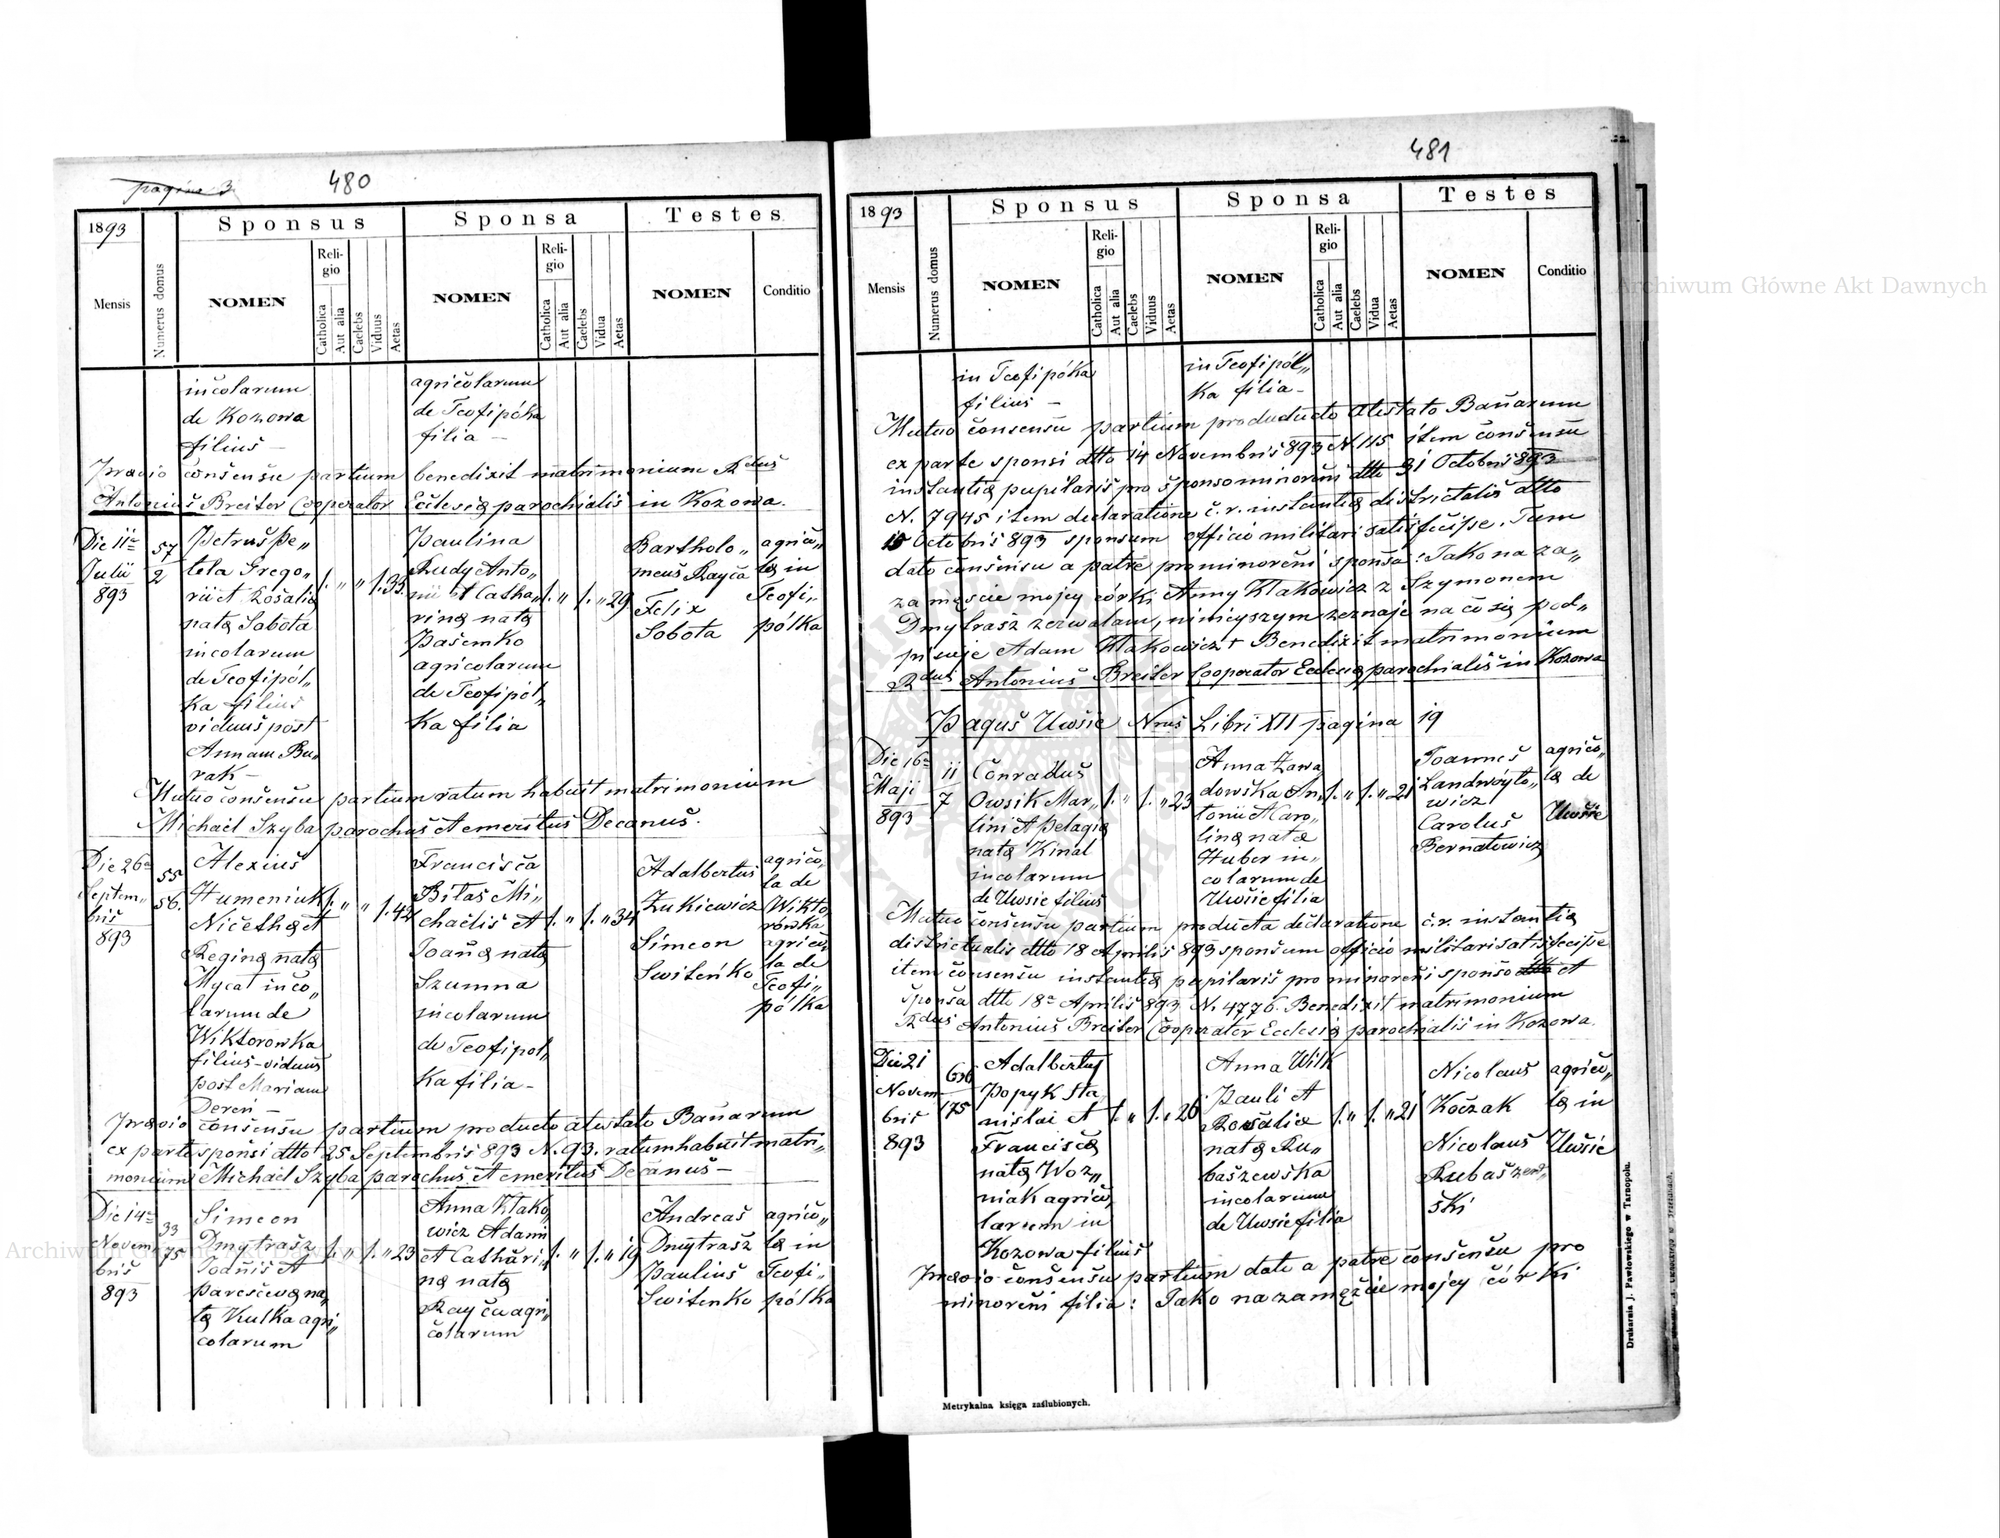 pagina 3
480
1893
Sponsus
Sponsa
Testes
Mensis
Numerus domus
NOMEN
Religio
Catholica
Aut alia
Caelebs
Viduus
Aetas
NOMEN
Religio
Catholica
Aut alia
Caelebs
Vidua
Aetas
NOMEN
Conditio
incolarum
de Kozowa
filius –
agricolarum
de Teofipólka
filia –
Praevio consensu partium benedixit matrimonium Rdus
Antonius Breiter Cooperator Ecclesiæ parochialis in Kozowa.
Die 11a
Julii
893
57
2
Petrus Pe„
tela Grego„
rii et Rosaliæ
natæ Sabota
incolarum
de Teofipól„
ka filius
viduus post
Annam Bu„
rak –
1. „ „ 1. 33
Paulina
Rudy Anto„
nii et Catha„
rinæ natæ
Pasemko
agricolarum
de Teofipól„
ka filia
1. „ 1. „ 29
Bartholo„
meus Rayca
Felix
Sobota
agrico„
læ in
Teofi„
pólka
Mutuo consensu partium ratum habuit matrimonium
Michael Szyba parochus et emeritus Decanus.
Die 26a
Septem„
bris
893
55
56.
Alexius
Humeniuk
Nicethæ et
Reginæ natæ
Mycat inco„
larum de
Wiktorowka
filius – viduus
post Mariam
Deren –
1. „ „ 1. 42
Francisca
Bilas Mi„
chaelis et
Joannæ natæ
Szumna
incolarum
de Teofipol„
ka filia –
1. „ 1. „ 34
Adalbertus
Zukiewicz
Simeon
Switenko
agrico„
la de
Wikto„
rowka
agrico„
la de
Teofi„
pólka
Praevio consensu partium producto atestato Banarum
ex parte sponsi dtto 25 Septembris 893 N. 93. ratum habuit matri„
monium Michael Szyba parochus et emeritus Decanus –
Die 14a
Novem„
bris
893
33
75
Simeon
Dmytrasz
Joannis et
Parascevæ na„
tæ Kulka agri„
colarum
1. „ 1. „ 23
Anna Klako„
wicz Adami
et Cathari„
næ natæ
Rayca agri„
colarum
1. „ 1. „ 19
Andreas
Dmytrasz
Paulius
Switenko
agrico„
læ in
Teofi„
pólka
481
1893
Sponsus
Sponsa
Testes
Mensis
Numerus domus
NOMEN
Religio
Catholica
Aut alia
Caelebs
Viduus
Aetas
NOMEN
Religio
Catholica
Aut alia
Caelebs
Vidua
Aetas
NOMEN
Conditio
in Teofipólka
filius –
in Teofipól„
ka filia –
Mutuo consensu partium producto atestato Banarum
ex parte sponsi dtto 14 Novembris 893 N. 115 item consensu
instantiæ pupilaris pro sponso minoreni dtto 31 Octobris 893
N. 7945 item declaratione c. r. instantiæ districtalis dtto
15 Octobris 893 sponsum officio militari satisfecisse. Tam
dato consensu a patre pro minoreni sponsa: Jako na za„
zamęscie mojey córki Anny Klakowicz z Szymonem
Dmytrasz zezwalam, niniejszym zeznaję na co się pod„
pisuje Adam Klakowicz + Benedixit matrimonium
Rdus Antonius Breiter Cooperator Ecclesiæ parochialis in Kozowa
Pagus Uwsie Nrus Libri XII pagina 19
Die 16a
Maji
893
11
7
Conradus
Owsik Mar„
tini et Pelagiæ
natæ Kinal
incolarum
de Uwsie filius
1. „ 1. „ 23
Anna Zawa„
dowska An„
tonii et Karo„
linæ natæ
Huber in„
colarum de
Uwsie filia
1. „ 1. „ 21
Joannes
Landwoyto„
wicz
Carolus
Bernatowicz
agrico„
læ de
Uwsie
Mutuo consensu partium producta declaratione c. r. instantiæ
districtualis dtto 18 Aprilis 893 sponsum officio militari satisfecisse
item consensu instantiæ pupilaris pro minoreni sponso et
sponsa dtto 18a Aprilis 893 N. 4776. Benedixit matrimonium
Rdus Antonius Breiter Cooperator Ecclesiæ parochialis in Kozowa.
Die 21
Novem„
bris
893
175
Adalbertus
Popyk Sta„
nislai et
Franciscæ
natæ Woz„
niak agrico„
larum in
Kozowa filius
1. „ 1. „ 26
Anna Wilk
Pauli et
Rosaliæ
natæ Ru„
baszewska
incolarum
de Uwsie filia
1. „ 1. „ 21
Nicolaus
Koczak
Nicolaus
Rubaszew„
ski
agrico„
læ in
Uwsie
Praevio consensu partium dato a patre consensu pro
minoreni filia: Jako na zamęzcie mojey córki
Metrykalna księga zaślubionych.
Drukarnia J. Pawłowskiego w Tarnopolu.
Archiwum Główne Akt Dawnych
Archiwum Główne Akt Dawnych